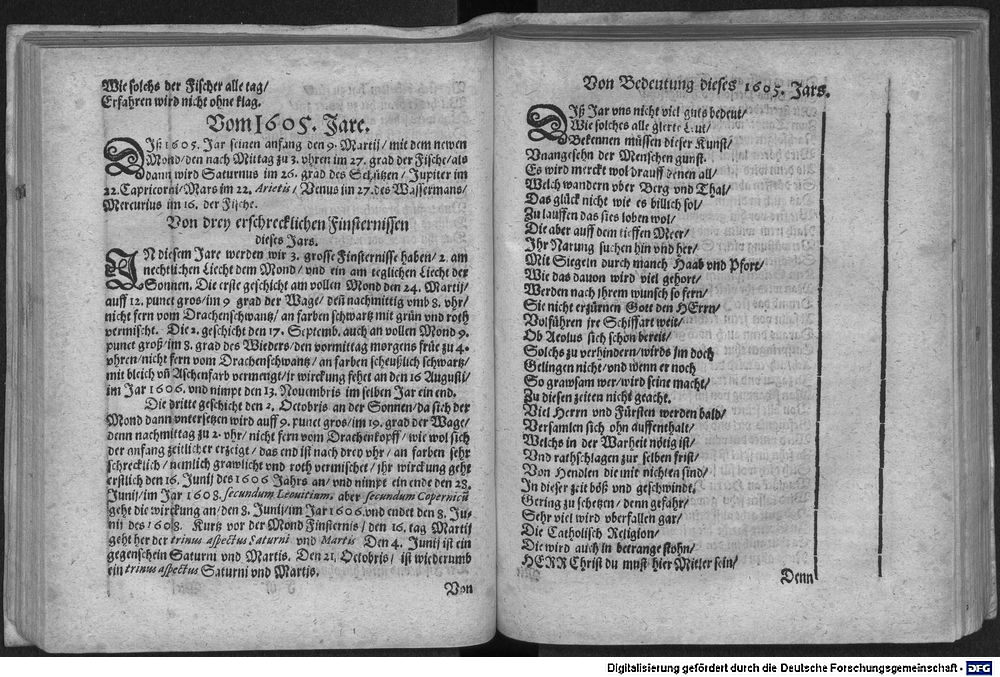 Wie solchs der Fischer alle tag/
Erfahren wird nicht ohne klag.
Vom 1605. Jare.
Diß 1605. Jar seinen anfang den 9. Martij/ mit dem newen
Mond/den nach Mittag zu 3. vhren im 27. grad der Fische/als
dann wird Saturnus im 26. grad des Schützen/ Jupiter im
22. Capricorni/Mars im 22. Arietis/ Venus im 27. des Wassermans/
Mercurius im 16. der Fische.
Von drey erschrecklichen Finsternissen
dieses Jars.
IN diesem Jare werden wir 3. grosse Finsternisse haben/ 2. am
nechtlichen Liecht dem Mond/ vnd ein am teglichen Liecht der
Sonnen. Die erste geschicht am vollen Mond den 24. Martij/
auff 12. punct gros/im 9 grad der Wage/ deñ nachmittig vmb 8. vhr/
nicht fern vom Drachenschwantz/ an farben schwartz mit grün vnd roth
vermischt. Die 2. geschicht den 17. Septemb. auch an vollen Mond 9.
punct groß/im 8. grad des Wieders/den vormittag morgens früe zu 4.
vhren/nicht fern vom Drachenschwantz/ an farben scheußlich schwartz/
mit bleich vñ Aschenfarb vermengt/jr wirckung fehet an den 16 Augusti/
im Jar 1606. vnd nimpt den 13. Nouembris im selben Jar ein end.
Die dritte geschicht den 2. Octobris an der Sonnen/da sich der
Mond dann vntersetzen wird auff 9. punct gros/im 19. grad der Wage/
denn nachmittag zu 2. vhr/ nicht fern vom Drachenkopff/ wie wol sich
der anfang zeitlicher erzeigt/ das end ist nach drey vhr/ an farben sehr
schrecklich/ nemlich grawlicht vnd roth vermischet/ jhr wirckung geht
erstlich den 16. Junij des 1606 Jahrs an/ vnd nimpt ein ende den 28.
Junij/im Jar 1608. secundum Leouitium, aber secundum Copernicũ
geht die wirckung an/ den 8. Junij/im Jar 1606. vnd endet den 8. Ju-
nij des 1608. Kurtz vor der Mond Finsternis/ den 16. tag Martij
geht her der trinus aspectus Saturni vnd Martis Den 4. Junij ist ein
gegenschein Saturni vnd Martis. Den 21. Octobris/ ist wiederumb
ein trinus aspectus Saturni vnd Martis.
Von
Von Bedeutung dieses 1605. Jars.
Diß Jar vns nicht viel guts bedeut/
Wie solches alle glerte Leut/
Bekennen müssen dieser Kunst/
Vnangesehn der Menschen gunst.
Es wird merckt wol drauff denen all/
Welch wandern vber Berg vnd Thal/
Das glück nicht wie es billich sol/
Zu lauffen das sies loben wol/
Die aber auff dem tieffen Meer/
Ihr Narung suchen hin vnd her/
Mit Siegeln durch manch Haab vnd Pfort/
Wie das dauon wird viel gehort/
Werden nach jhrem wunsch so fern/
Sie nicht erzürnen Gott den HErrn/
Volführen jre Schiffart weit/
Ob Aeolus sich schon bereit/
Solchs zu verhindern/ wirds jm doch
Gelingen nicht/ vnd wenn er noch
So grawsam wer/ wird seine macht/
Zu diesen zeiten nicht geacht.
Viel Herrn vnd Fürsten werden bald/
Versamlen sich ohn auffenthalt/
Welchs in der Warheit nötig ist/
Vnd rathschlagen zur selben frist/
Von Hendlen die mir nichten sind/
In dieser zeit böß vnd geschwindt.
Gering zu schetzen/ denn gefähr/
Sehr viel wird vberfallen gar/
Die Catholisch Religion/
Die wird auch in betrange stohn/
HERR Christ du must hier Mitler sein/
Denn
Digitalisierung gefördert durch die Deutsche Forschungsgemeinschaft - DFG